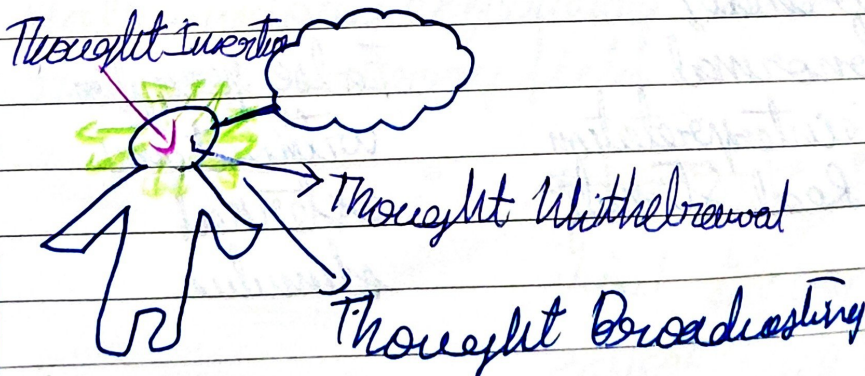 Thought Insertion
Thought Withdrawal
Thought Broadcasting